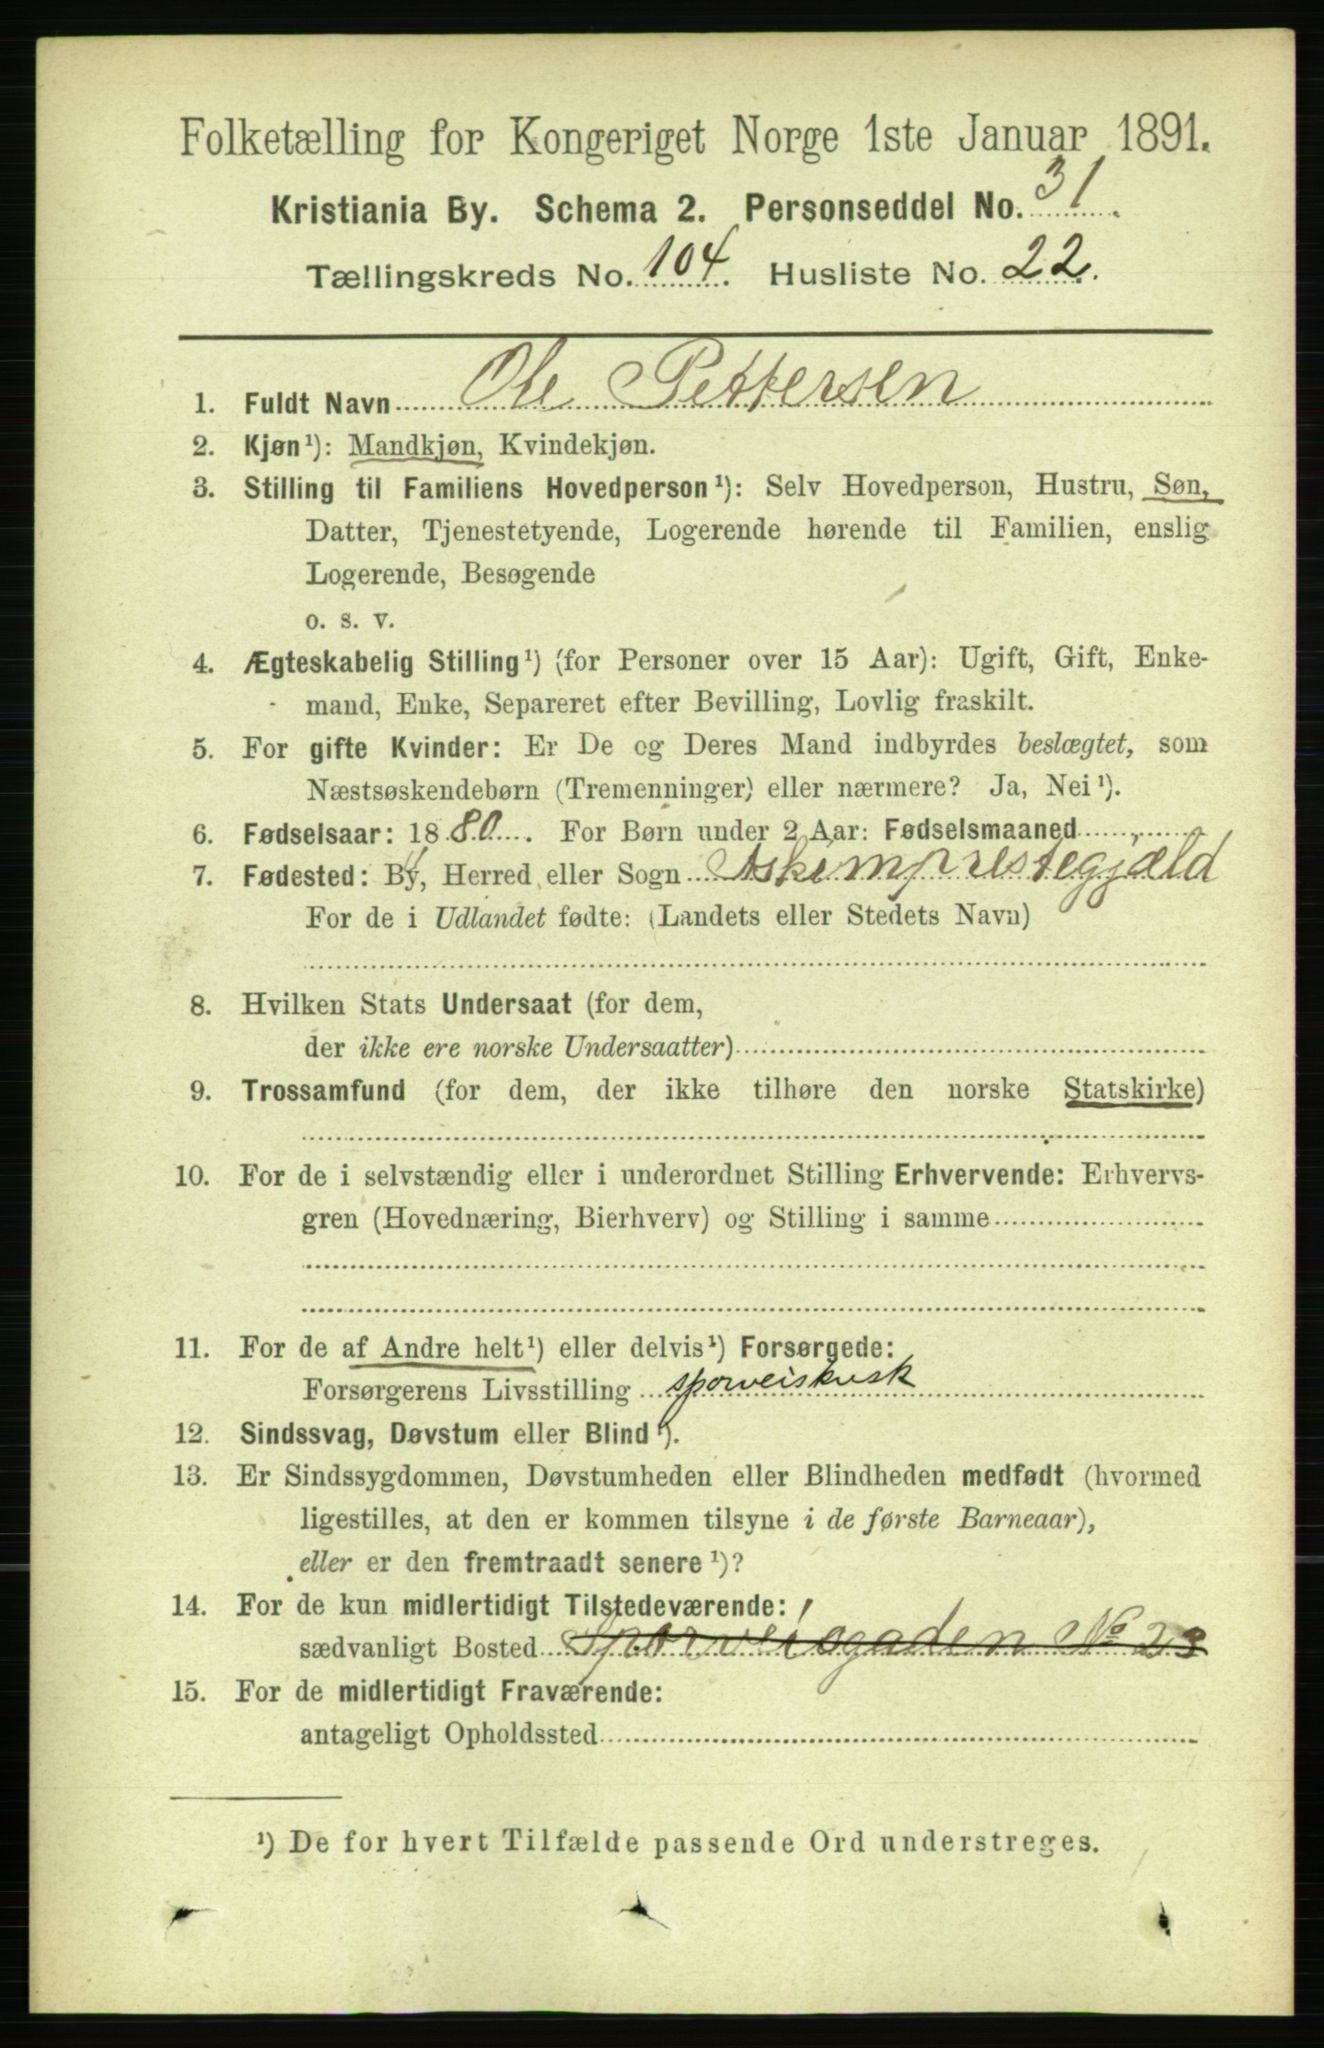 Folketælling for Kongeriget Norge 1ste Januar 1891.
Kristiania By. Schema 2. Personseddel No. 31.
Tællingskreds No. 104. Husliste No. 22.
1. Fuldt Navn Ole Pettersen
2. Kjøn¹): Mandkjøn, Kvindekjøn.
3. Stilling til Familiens Hovedperson¹): Selv Hovedperson, Hustru, Søn,
Datter, Tjenestetyende, Logerende hørende til Familien, enslig
Logerende, Besøgende
o. s. v.
4. Ægteskabelig Stilling¹) (for Personer over 15 Aar): Ugift, Gift, Enke-
mand, Enke, Separeret efter Bevilling, Lovlig fraskilt.
5. For gifte Kvinder: Er De og Deres Mand indbyrdes beslægtet, som
Næstsøskendebørn (Tremenninger) eller nærmere? Ja, Nei¹).
6. Fødselsaar: 1880. For Børn under 2 Aar: Fødselsmaaned
7. Fødested: By, Herred eller Sogn Askimprestegjæld
For de i Udlandet fødte: (Landets eller Stedets Navn)
8. Hvilken Stats Undersaat (for dem,
der ikke ere norske Undersaatter)
9. Trossamfund (for dem, der ikke tilhøre den norske Statskirke)
10. For de i selvstændig eller i underordnet Stilling Erhvervende: Erhvervs-
gren (Hovednæring, Bierhverv) og Stilling i samme
11. For de af Andre helt¹) eller delvis¹) Forsørgede:
Forsørgerens Livsstilling sporveiskusk
12. Sindssvag, Døvstum eller Blind¹).
13. Er Sindssygdommen, Døvstumheden eller Blindheden medfødt (hvormed
ligestilles, at den er kommen tilsyne i de første Barneaar),
eller er den fremtraadt senere¹)?
14. For de kun midlertidigt Tilstedeværende:
sædvanligt Bosted Sporveisgaden No 23
15. For de midlertidigt Fraværende:
antageligt Opholdssted
¹) De for hvert Tilfælde passende Ord understreges.